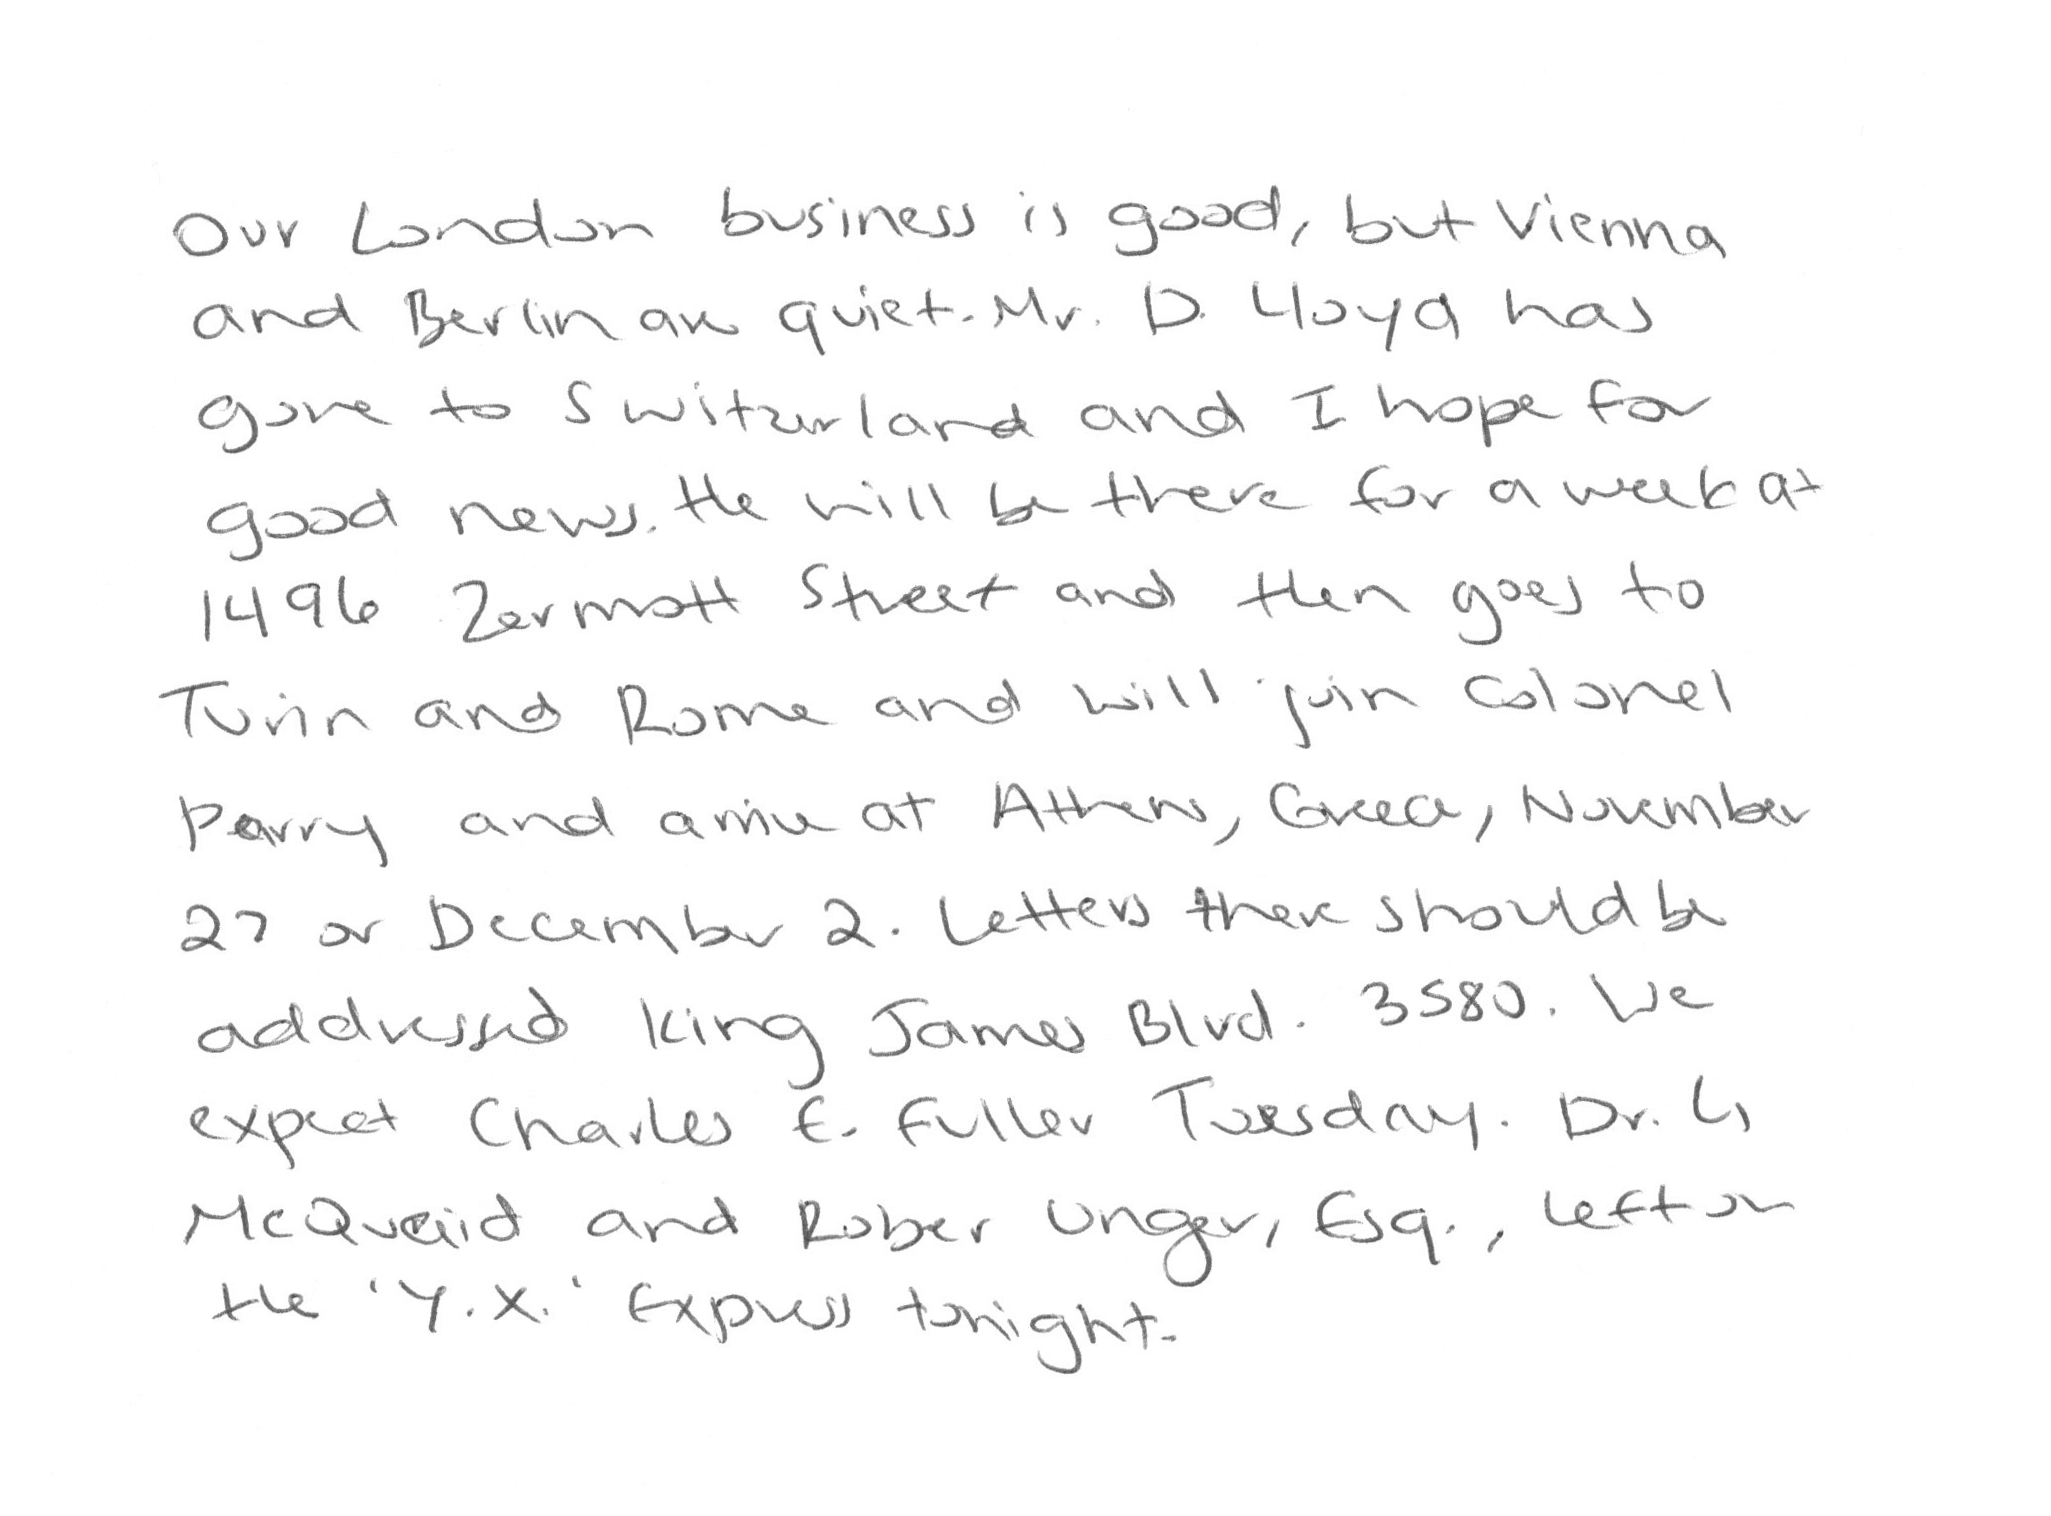 Our London business is good, but Vienna
and Berlin are quiet. Mr. D. Lloyd has
gone to Switzerland and I hope for
good news. He will be there for a week at
1496 Zermott Street and then goes to
Turin and Rome and will join Colonel
Parry and arrive at Athens, Greece, November
27 or December 2. Letters there should be
addressed King James Blvd. 3580. We
expect Charles E. Fuller Tuesday. Dr. L
McQuaid and Rober Unger, Esq., left on
the 'Y.X.' Express tonight.